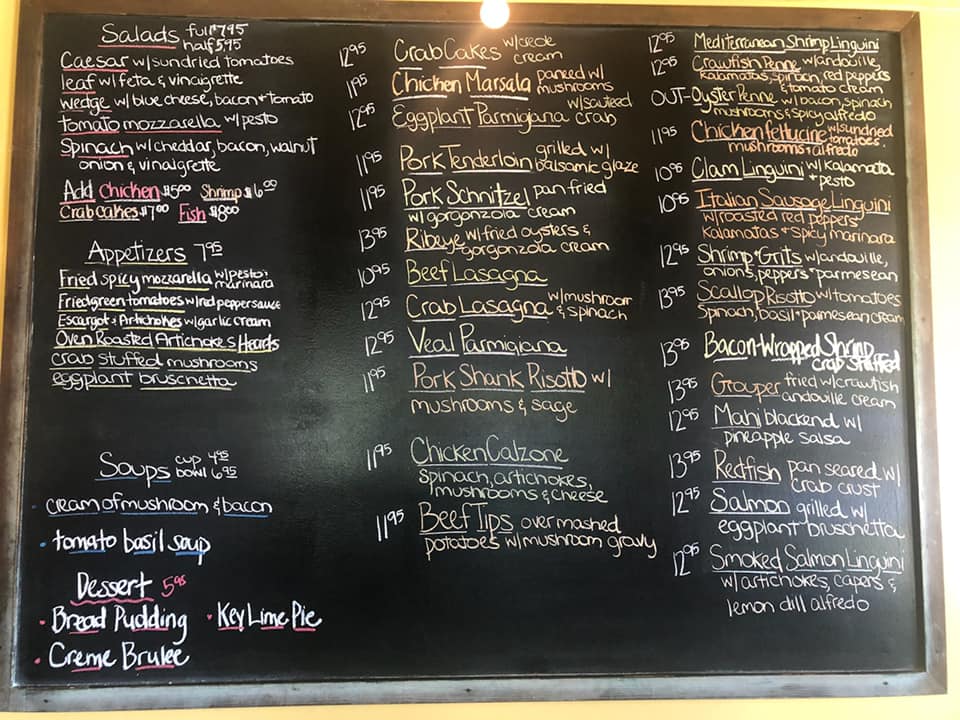 Salads full $7.95
half 5.95
Caesar w/sundried tomatoes
leaf w/feta & vinaigrette
wedge w/blue cheese, bacon + tomato
tomato mozzarella w/pesto
Spinach w/cheddar, bacon, walnut
onion & vinaigrette
Add Chicken $5.00 Shrimp $6.00
Crab Cakes $7.00 Fish $8.00
Appetizers 7.95
Fried spicy mozzarella w/pesto &
marinara
Fried green tomatoes w/red pepper sauce
Escargot + Artichokes w/garlic cream
Oven Roasted Artichokes Hearts
crab stuffed mushrooms
eggplant bruschetta
Soups cup 4.95
bowl 6.95
cream of mushroom & bacon
tomato basil soup
Dessert 5.95
Bread Pudding
Key Lime Pie
Creme Brulee
12.95 Crab Cakes w/creole
cream
11.95 Chicken Marsala paneed w/
mushrooms
12.95 Eggplant Parmigiana w/sauteed
crab
11.95 Pork Tenderloin grilled w/
balsamic glaze
11.95 Pork Schnitzel pan fried
w/gorgonzola cream
13.95 Ribeye w/fried oysters &
gorgonzola cream
10.95 Beef Lasagna
12.95 Crab Lasagna w/mushroom
& spinach
12.95 Veal Parmigiana
11.95 Pork Shank Risotto w/
mushrooms & sage
11.95 Chicken Calzone
spinach, artichokes,
mushrooms & cheese
11.95 Beef Tips over mashed
potatoes w/mushroom gravy
12.95 Mediterranean Shrimp Linguini
12.95 Crawfish Penne w/andouille,
kalamatas, spinach, red peppers
& tomato cream
OUT- Oyster Penne w/bacon, spinach
mushrooms & spicy alfredo
11.95 Chicken fettucine w/sundried
tomatoes,
mushrooms + alfredo
10.95 Clam Linguini w/kalamata
+ pesto
10.95 Italian Sausage Linguini
w/roasted red peppers
kalamatas + spicy marinara
12.95 Shrimp + Grits w/andouille,
onions, peppers + parmesean
13.95 Scallop Risotto w/tomatoes
Spinach, basil + parmesean cream
13.95 Bacon-Wrapped Shrimp
crab stuffed
13.95 Grouper fried w/crawfish
andouille cream
12.95 Mahi blackend w/
pineapple salsa
13.95 Redfish pan seared w/
crab crust
12.95 Salmon grilled w/
eggplant bruschetta
12.95 Smoked Salmon Linguini
w/artichokes, capers &
lemon dill alfredo